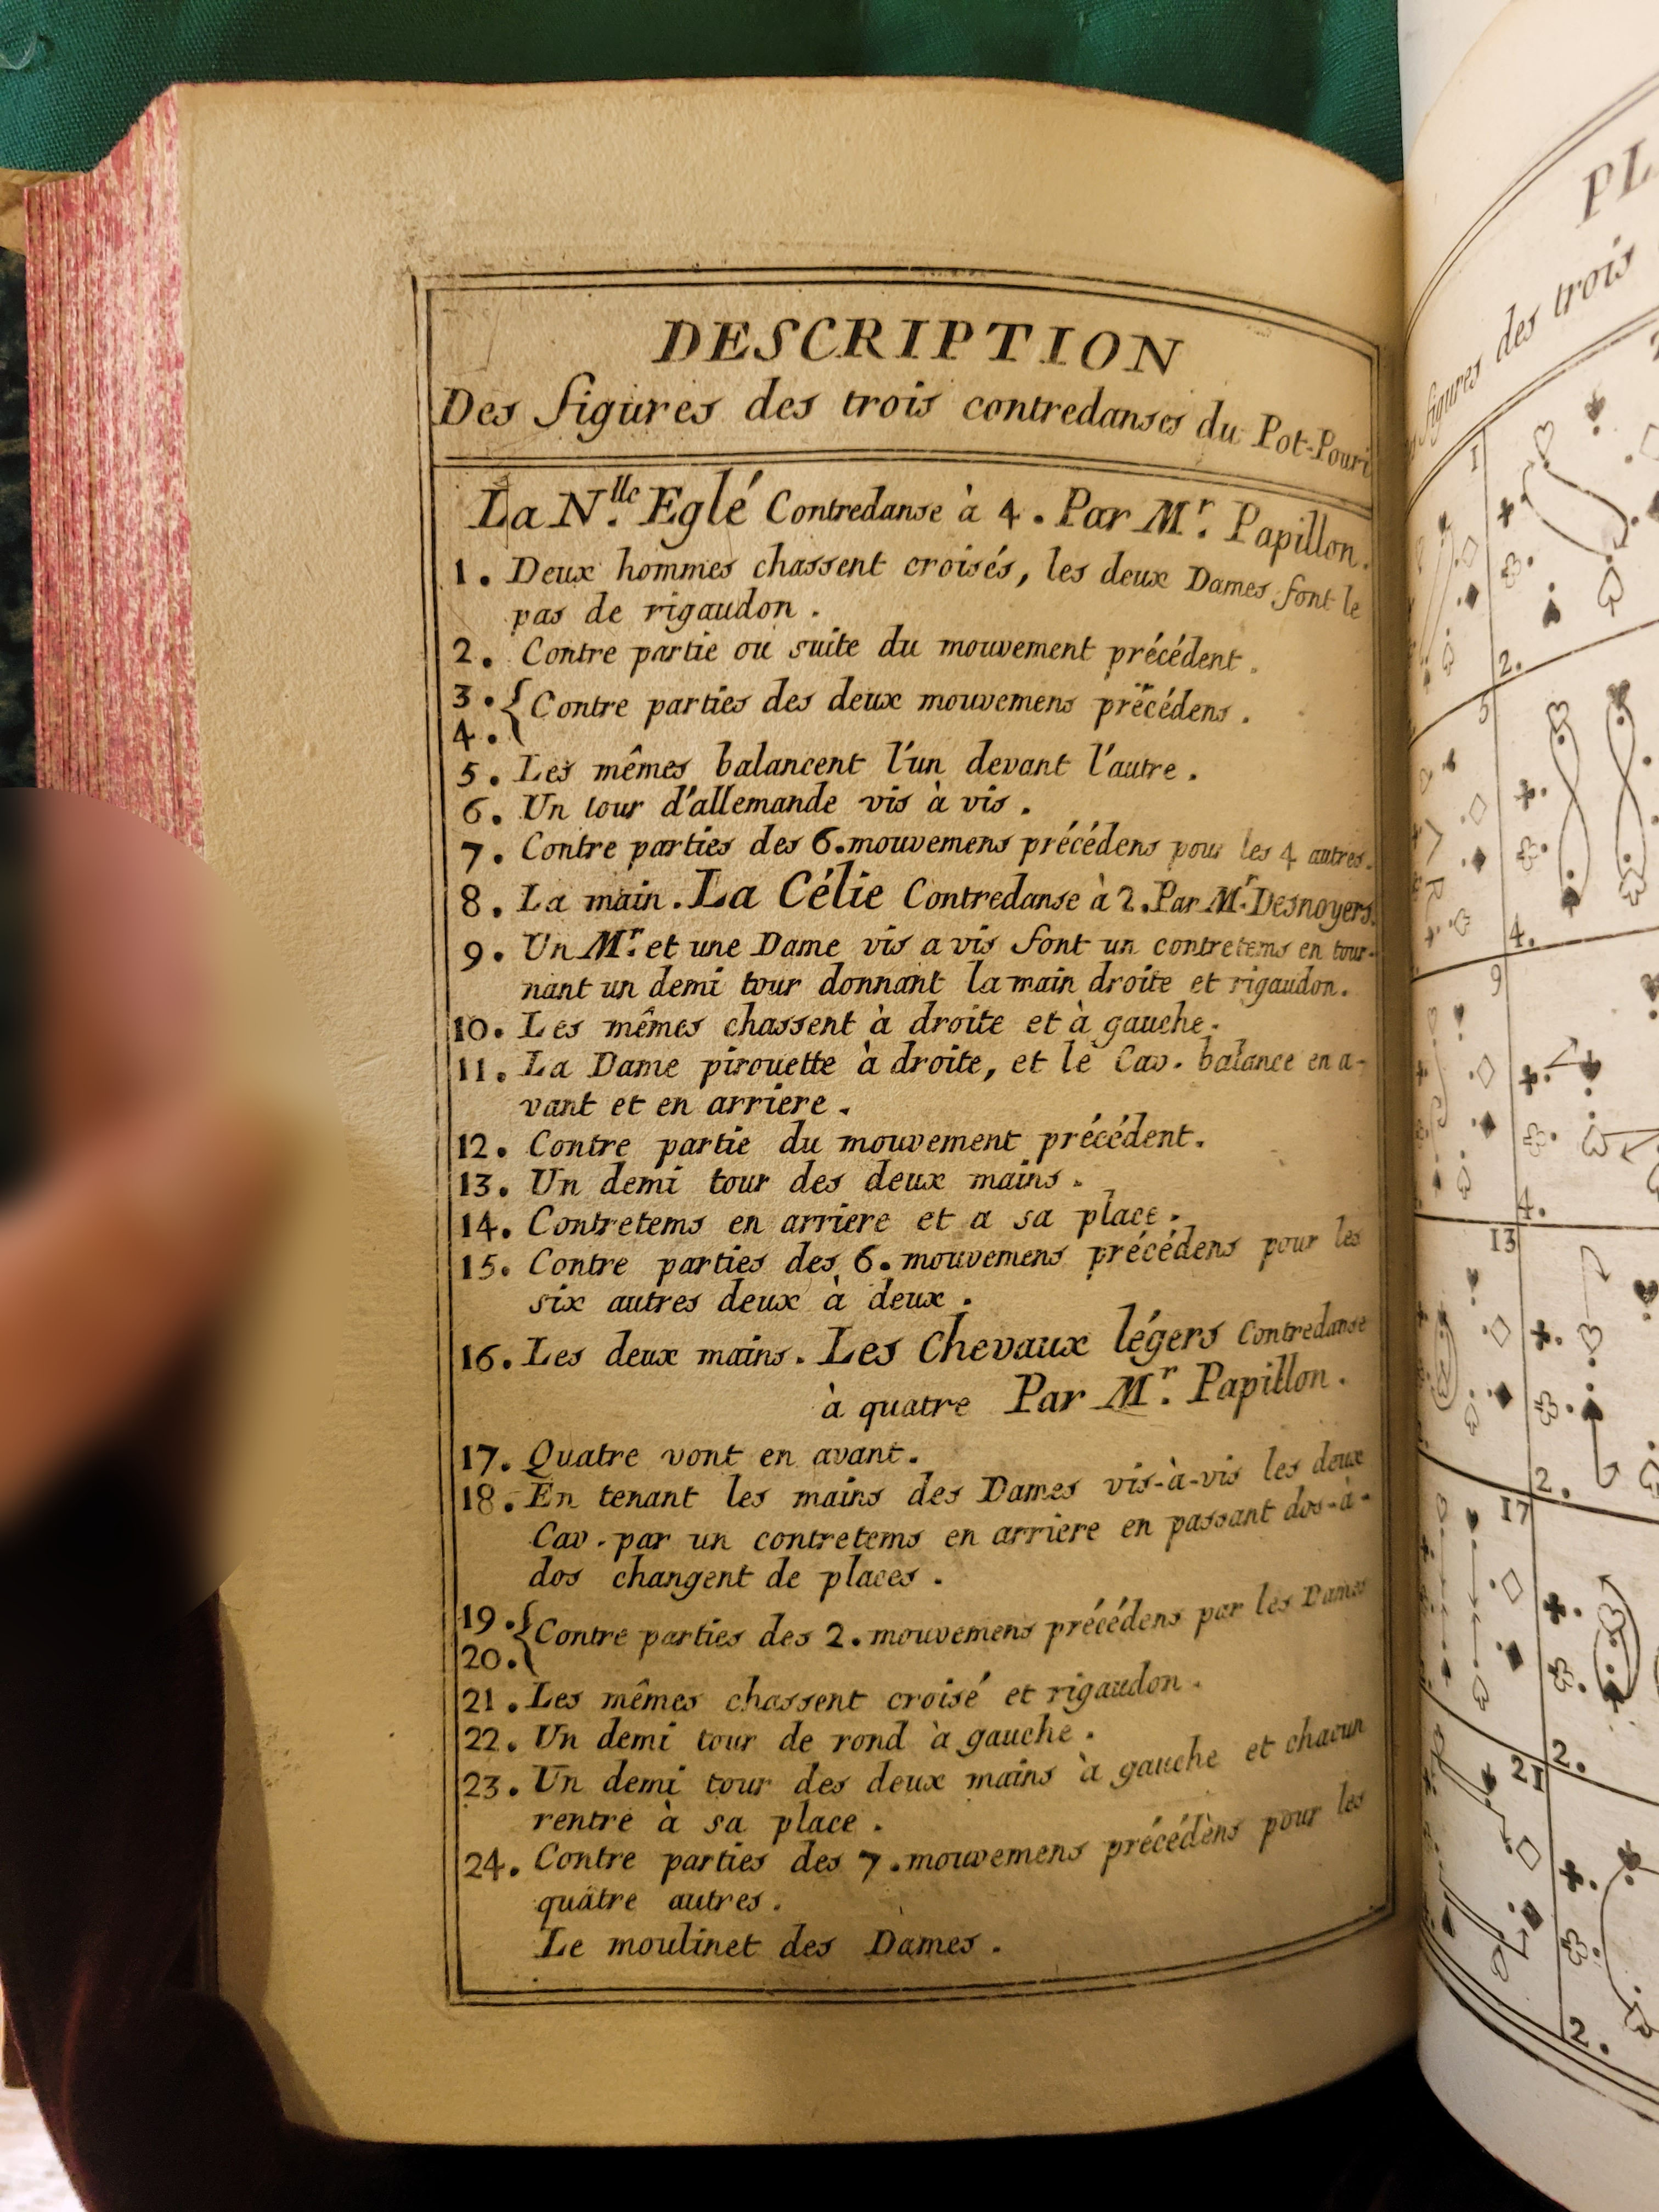 DESCRIPTION
Des figures des trois contredanses du Pot-Pouri
La N.lle Eglé Contredanse à 4. Par Mr. Papillon.
1. Deux hommes chassent croisés, les deux Dames font le
pas de rigaudon.
2. Contre partie ou suite du mouvement précédent.
3. { Contre parties des deux mouvemens précédens.
4.
5. Les mêmes balancent l'un devant l'autre.
6. Un tour d'allemande vis à vis.
7. Contre parties des 6. mouvemens précédens pour les 4 autres.
8. La main. La Célie Contredanse à 2. Par Mr. Desnoyers.
9. Un Mr. et une Dame vis a vis font un contretems en tour-
nant un demi tour donnant la main droite et rigaudon.
10. Les mêmes chassent à droite et à gauche.
11. La Dame pirouette à droite, et le Cav. balance en a-
vant et en arriere.
12. Contre partie du mouvement précédent.
13. Un demi tour des deux mains.
14. Contretems en arriere et a sa place.
15. Contre parties des 6. mouvemens précédens pour les
six autres deux à deux.
16. Les deux mains. Les Chevaux légers Contredanse
à quatre Par Mr. Papillon.
17. Quatre vont en avant.
18. En tenant les mains des Dames vis-à-vis les deux
Cav. par un contretems en arriere en passant dos-à-
dos changent de places.
19. { Contre parties des 2. mouvemens précédens par les Dames
20.
21. Les mêmes chassent croisé et rigaudon.
22. Un demi tour de rond à gauche.
23. Un demi tour des deux mains à gauche et chacun
rentre à sa place.
24. Contre parties des 7. mouvemens précédens pour les
quatre autres.
Le moulinet des Dames.
PL
figures des trois
1
2.
5
4.
9
4.
13
2.
17
2.
21
2.